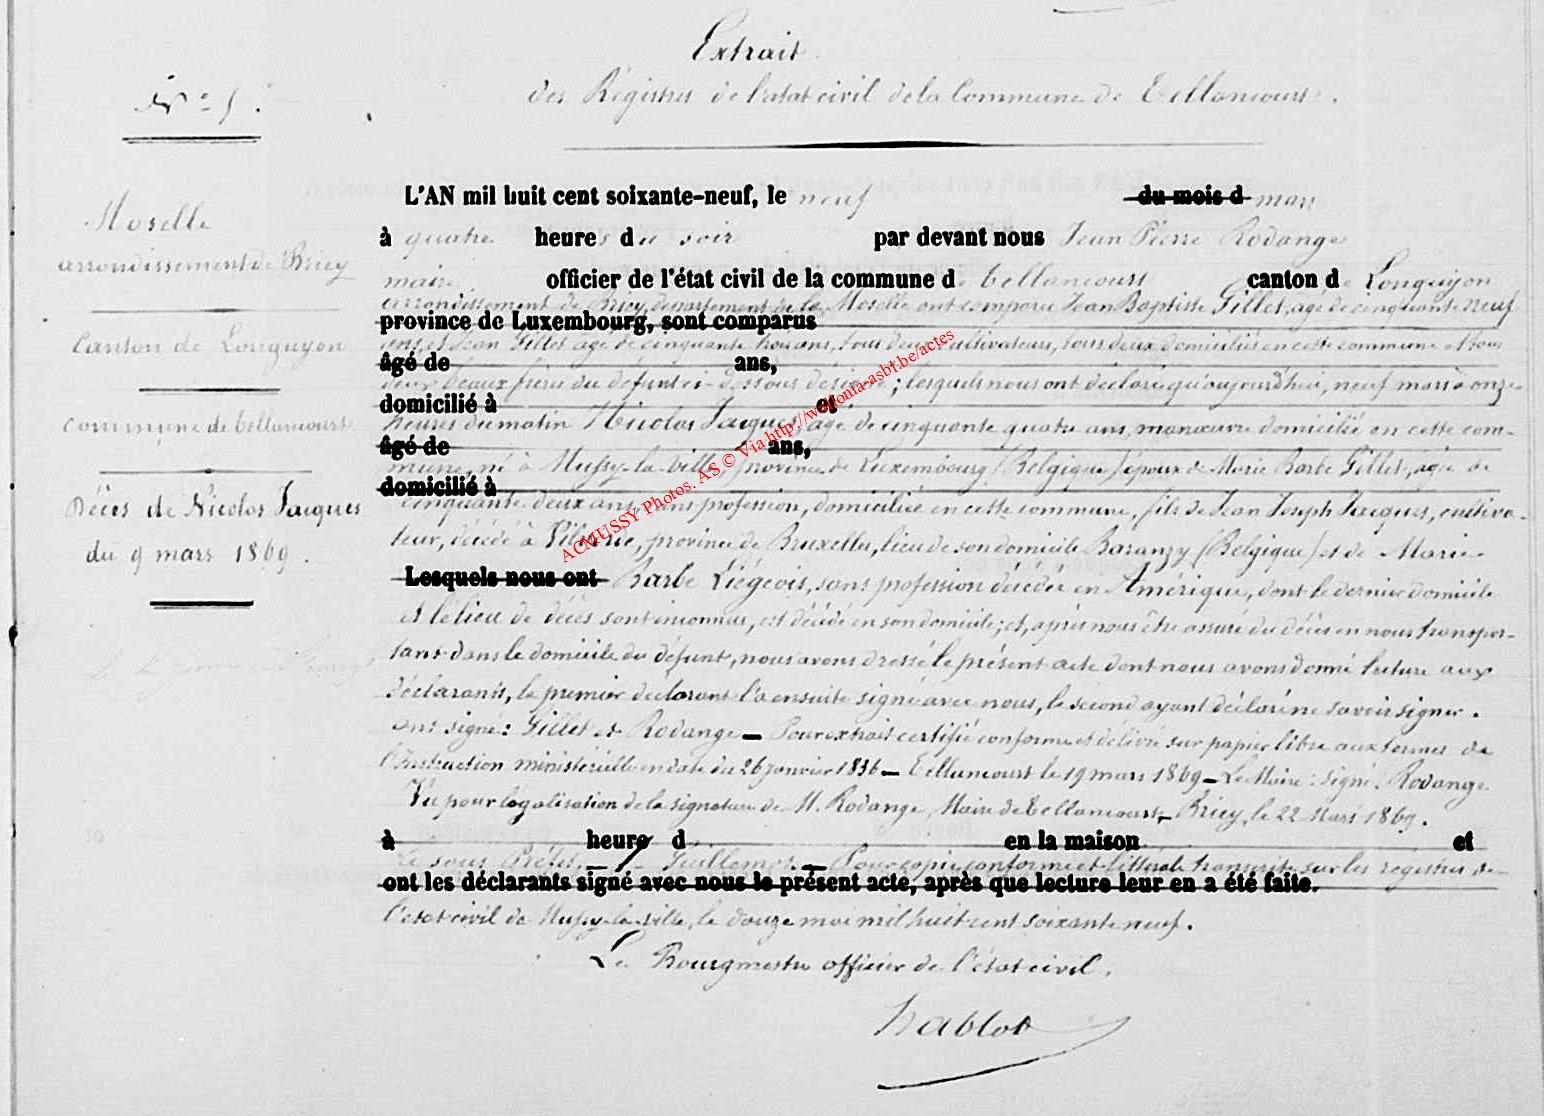 Extrait
des Régistres de l'état civil de la Commune de Tellancourt.
N° 5.
Moselle
arrondissement de Briey
Canton de Longuyon
Commune de tellancourt
Décès de Nicolas Jacques
du 9 mars 1869.
L'AN mil huit cent soixante-neuf, le neuf du mois d mars
à quatre heures du soir par devant nous Jean Pierre Rodange
maire officier de l'état civil de la commune de tellancourt canton de Longuyon
arrondissement de Briey, département de la Moselle ont comparu Jean Baptiste Gillet, agé de cinquante neuf
province de Luxembourg, sont comparus
ans, et Jean Gillet agé de cinquante trois ans, tous deux cultivateurs, tous deux domiciliés en cette commune et tous
âgé de ans,
deux beaux frères du défunt ci-dessous désigné; lesquels nous ont déclaré qu'aujourd'hui, neuf mars à onze
domicilié à et
heures du matin Nicolas Jacques, agé de cinquante quatre ans, manœuvre domicilié en cette com-
âgé de ans,
mune, né à Mussy-la-Ville, province de Luxembourg (Belgique) époux de Marie Barbe Gillet, agée de
domicilié à
cinquante deux ans, sans profession, domiciliée en cette commune, fils de Jean Joseph Jacques, cultiva-
teur, décédé à Vilvorde, province de Bruxelles, lieu de son domicile Baranzy (Belgique) et de Marie
Lesquels nous ont Barbe Liégeois, sans profession décédée en Amérique, dont le dernier domicile
et le lieu de décès sont inconnus, est décédé en son domicile; et, après nous être assuré du décès en nous transpor-
tant dans le domicile du défunt, nous avons dressé le présent acte dont nous avons donné lecture aux
déclarants, le premier déclarant l'a ensuite signé avec nous, le second ayant déclaré ne savoir signer.
ont signé: Gillet et Rodange – Pour extrait certifié conforme et délivré sur papier libre aux termes de
l'Instruction ministérielle en date du 26 janvier 1836 – Tellancourt le 19 mars 1869 – Le Maire: signé: Rodange
Vu pour légalisation de la signature de M. Rodange, Maire de tellancourt – Briey, le 22 Mars 1869.
à heure d en la maison et
Le sous Préfet, Guillemot – Pour copie conforme et littérale transcrite sur les registres de
ont les déclarants signé avec nous le présent acte, après que lecture leur en a été faite.
l'état civil de Mussy-la-ville, le douze mai mil huit cent soixante neuf.
Le Bourgmestre officier de l'état civil,
hablot
ACMUSSY Photos. AS © Via http://wallonia-asbl.be/actes